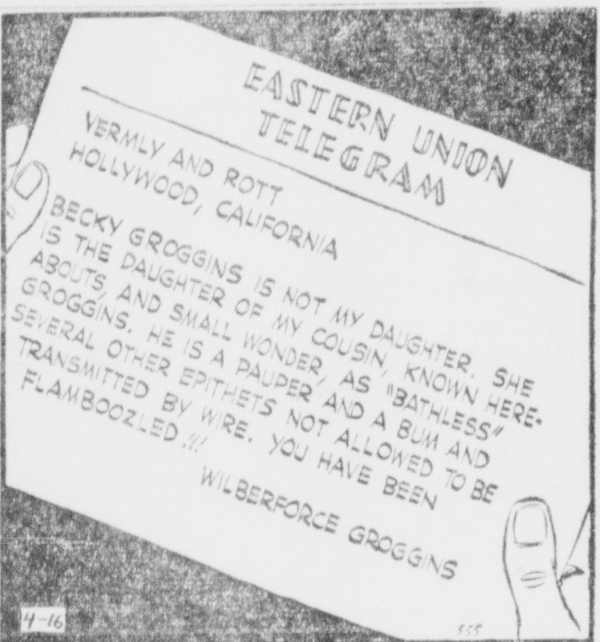 EASTERN UNION
TELEGRAM
VERMLY AND ROTT
HOLLYWOOD, CALIFORNIA
BECKY GROGGINS IS NOT MY DAUGHTER. SHE
IS THE DAUGHTER OF MY COUSIN, KNOWN HERE-
ABOUTS, AND SMALL WONDER, AS "BATHLESS"
GROGGINS. HE IS A PAUPER AND A BUM AND
SEVERAL OTHER EPITHETS NOT ALLOWED TO BE
TRANSMITTED BY WIRE. YOU HAVE BEEN
FLAMBOOZLED!!!
WILBERFORCE GROGGINS
4-16